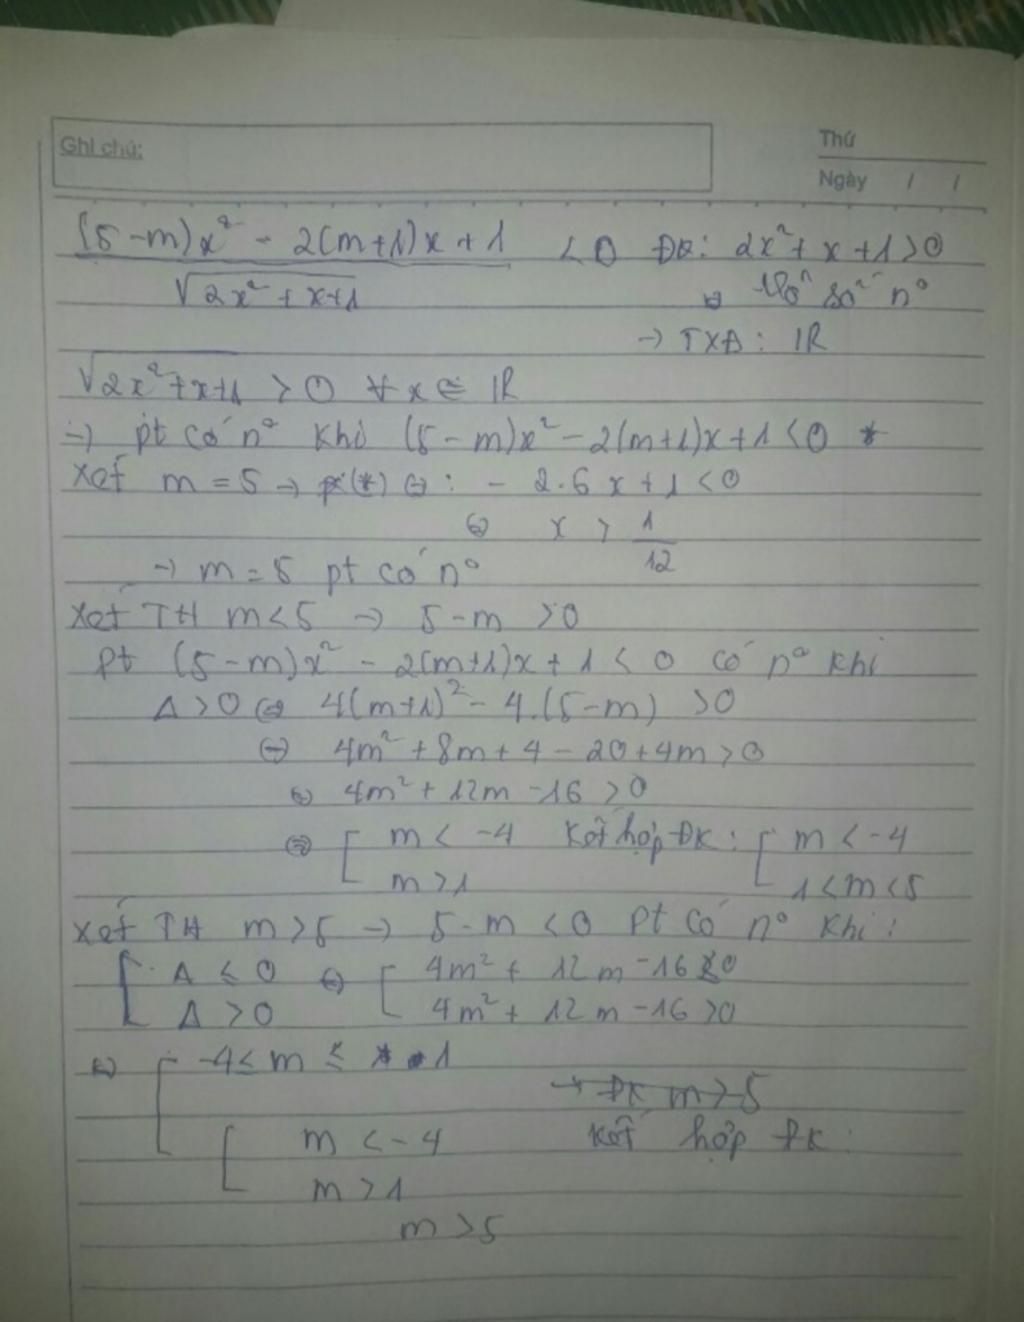 Ghi chú:
Thứ
Ngày / /
(5-m)x² - 2(m+1)x + 1 < 0 ĐK: 2x² + x + 1 > 0
√2x² + x + 1 ⇔ Vô số n°
→ TXĐ: IR
√2x² + x + 1 > 0 ∀ x ∈ IR
→ pt có n° khi (5-m)x² - 2(m+1)x + 1 < 0 *
Xét m = 5 → (*) ⇔ : - 2.6x + 1 < 0
⇔ x > 1/12
→ m = 5 pt có n°
Xét TH m < 5 → 5 - m > 0
Pt (5-m)x² - 2(m+1)x + 1 < 0 có n° khi
Δ > 0 ⇔ 4(m+1)² - 4.(5-m) > 0
⇔ 4m² + 8m + 4 - 20 + 4m > 0
⇔ 4m² + 12m - 16 > 0
⇔ [ m < -4 Kết hợp ĐK: [ m < -4
m > 1 1 < m < 5
Xét TH m > 5 → 5 - m < 0 Pt có n° khi:
[ Δ ≤ 0 ⇔ [ 4m² + 12m - 16 ≤ 0
Δ > 0 4m² + 12m - 16 > 0
⇔ [ -4 ≤ m ≤ 1
→ ĐK m > 5
[ m < -4 Kết hợp ĐK:
m > 1
m > 5